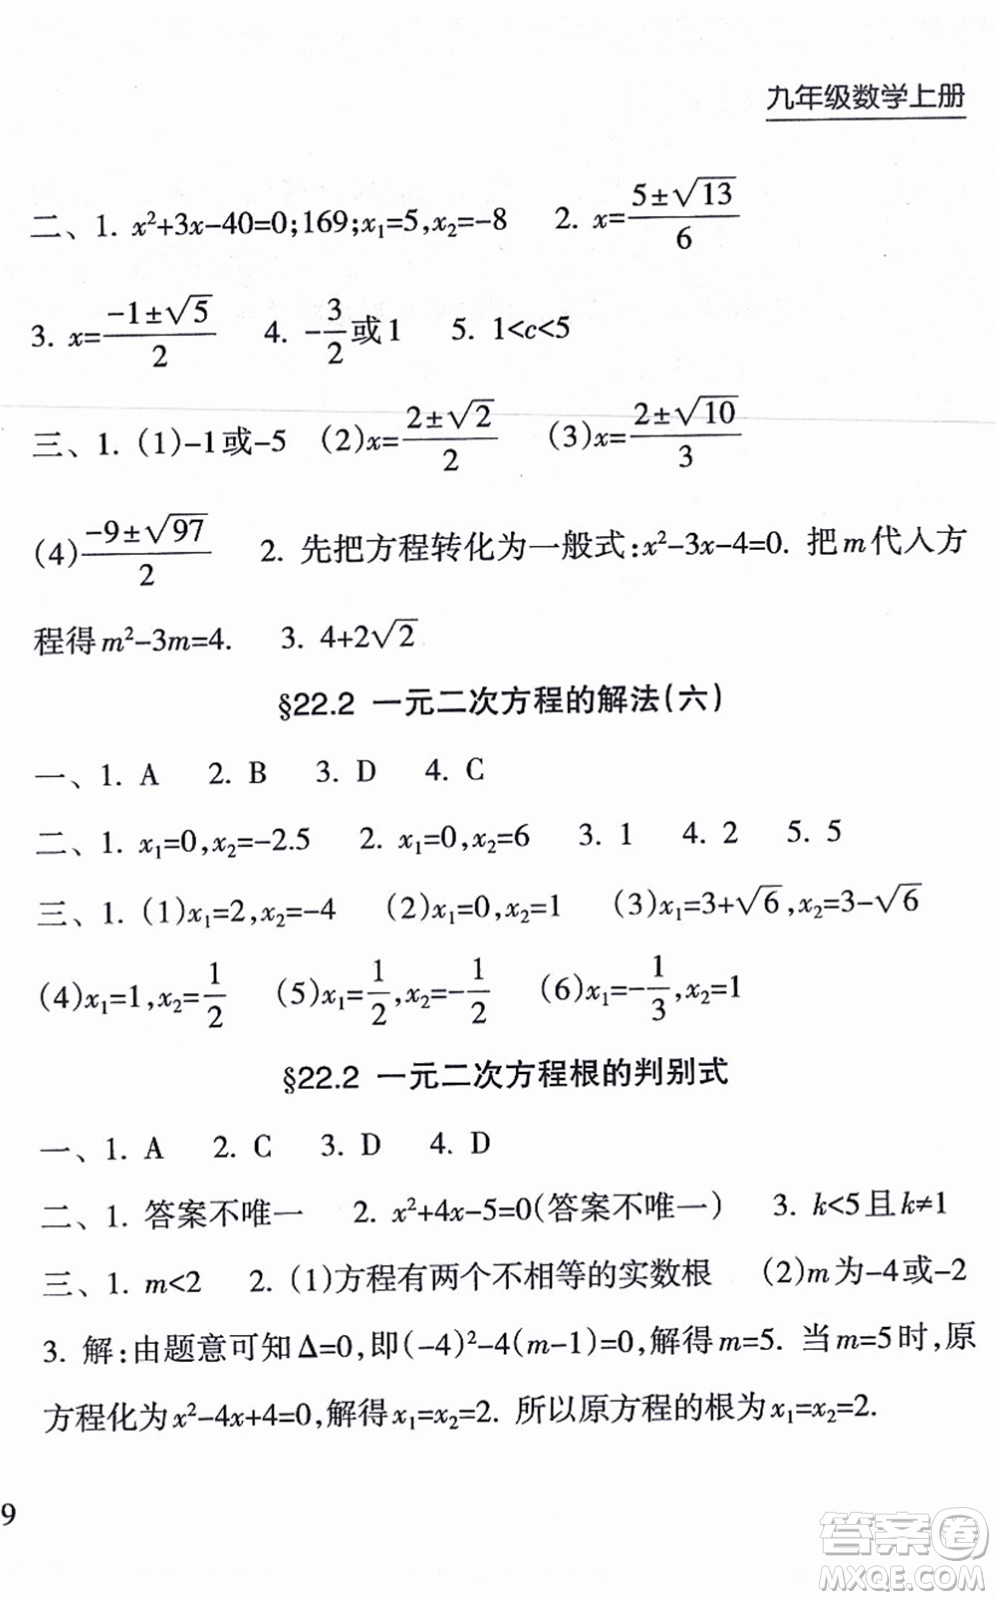 九年级数学上册
二、1. x²+3x-40=0;169;x₁=5,x₂=-8  2. x=(5±√13)/6
3. x=(-1±√5)/2  4. -3/2或1  5. 1<c<5
三、1. (1)-1或-5  (2)x=(2±√2)/2  (3)x=(2±√10)/3
(4)(-9±√97)/2  2. 先把方程转化为一般式:x²-3x-4=0. 把m代入方
程得m²-3m=4.  3. 4+2√2
§22.2 一元二次方程的解法(六)
一、1. A  2. B  3. D  4. C
二、1. x₁=0,x₂=-2.5  2. x₁=0,x₂=6  3. 1  4. 2  5. 5
三、1. (1)x₁=2,x₂=-4  (2)x₁=0,x₂=1  (3)x₁=3+√6,x₂=3-√6
(4)x₁=1,x₂=1/2  (5)x₁=1/2,x₂=-1/2  (6)x₁=-1/3,x₂=1
§22.2 一元二次方程根的判别式
一、1. A  2. C  3. D  4. D
二、1. 答案不唯一  2. x²+4x-5=0(答案不唯一)  3. k<5且k≠1
三、1. m<2  2. (1)方程有两个不相等的实数根  (2)m为-4或-2
3. 解:由题意可知Δ=0,即(-4)²-4(m-1)=0,解得m=5. 当m=5时,原
方程化为x²-4x+4=0,解得x₁=x₂=2. 所以原方程的根为x₁=x₂=2.
9
答案圈
MXQE.COM